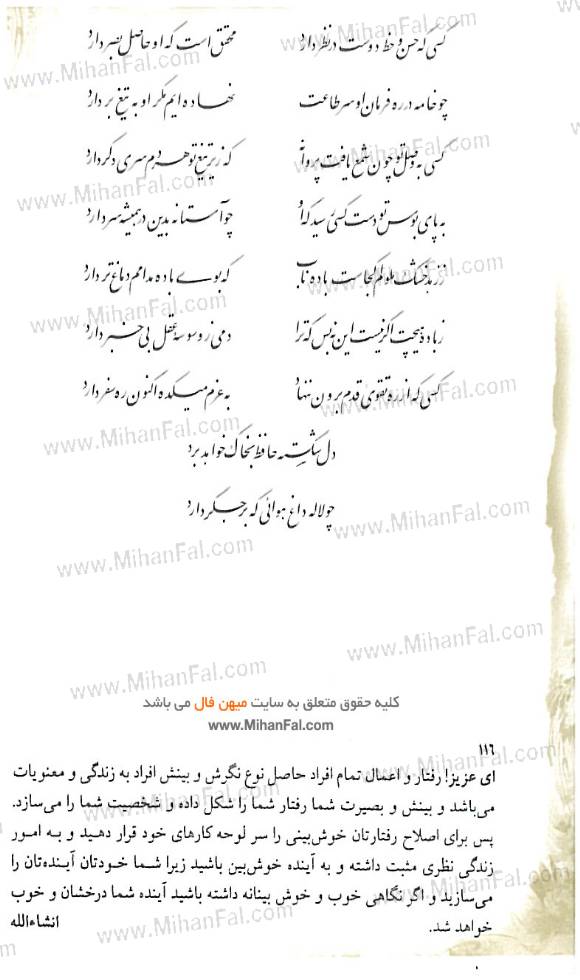 کسی که حسن و خط دوست در نظر دارد محقق است که او حاصل بصر دارد
چو خامه در ره فرمان او سر طاعت نهاده ایم مگر او به تیغ بردارد
کسی به وصل تو چون شمع یافت پروانه که زیر تیغ تو هر دم سری دگر دارد
به پای بوس تو دست کسی رسید که او چو آستانه بدین در همیشه سر دارد
ز زهد خشک ملولم کجاست باده ناب که بوی باده مدامم دماغ تر دارد
ز باده هیچت اگر نیست این نه بس که ترا دمی ز وسوسه عقل بی خبر دارد
کسی که از ره تقوی قدم برون ننهاد به عزم میکده اکنون ره سفر دارد
دل شکسته حافظ بخاک خواهد برد
چو لاله داغ هوائی که بر جگر دارد
کلیه حقوق متعلق به سایت میهن فال می باشد
www.MihanFal.com
۱۱۶
ای عزیز! رفتار و اعمال تمام افراد حاصل نوع نگرش و بینش افراد به زندگی و معنویات
می‌باشد و بینش و بصیرت شما رفتار شما را شکل داده و شخصیت شما را می‌سازد.
پس برای اصلاح رفتارتان خوش‌بینی را سر لوحه کارهای خود قرار دهید و به امور
زندگی نظری مثبت داشته و به آینده خوش‌بین باشید زیرا شما خودتان آینده‌تان را
می‌سازید و اگر نگاهی خوب و خوش بینانه داشته باشید آینده شما درخشان و خوب
خواهد شد. انشاءالله